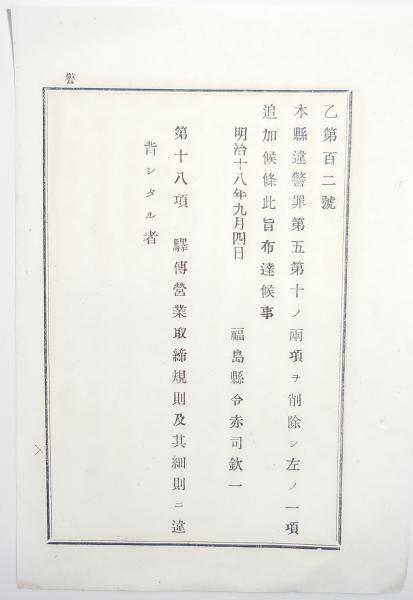 警
乙第百二號
本縣違警罪第五第十ノ兩項ヲ削除シ左ノ一項
追加候條此旨布達候事
明治十八年九月四日
福島縣令赤司欽一
第十八項　驛傳營業取締規則及其細則ニ違
背シタル者